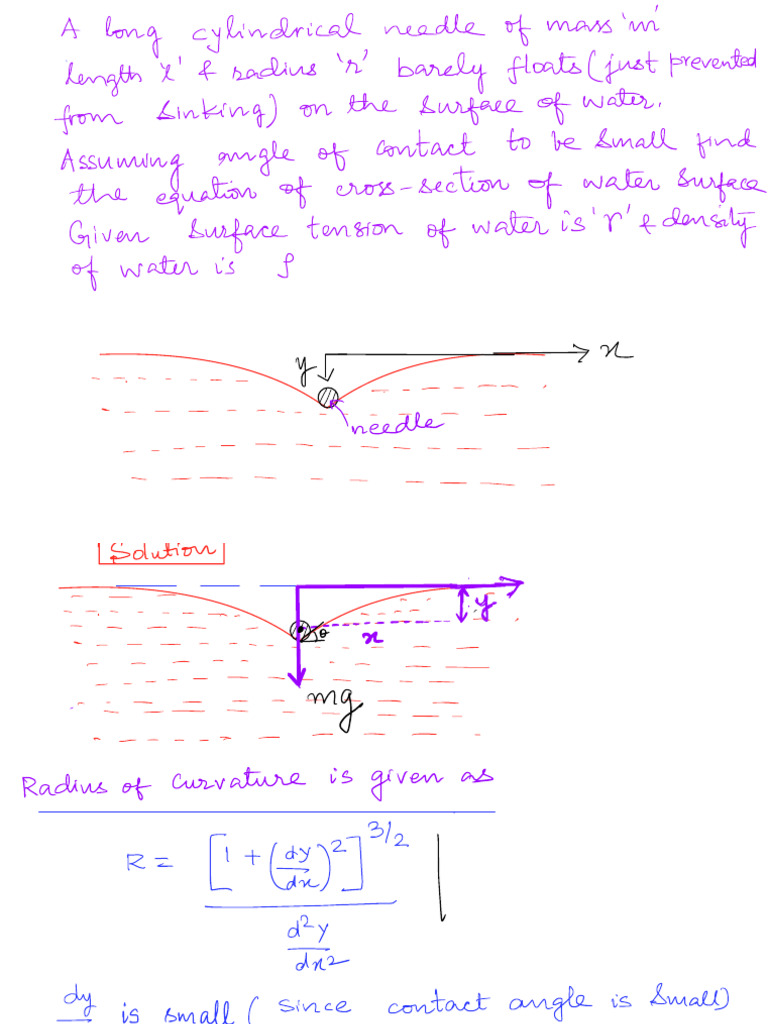 A long cylindrical needle of mass 'm'
length 'l' & radius 'r' barely floats (just prevented
from sinking) on the surface of water.
Assuming angle of contact to be small find
the equation of cross-section of water surface
Given surface tension of water is 'γ' & density
of water is ρ
y
x
needle
Solution
y
θ
x
mg
Radius of curvature is given as
R = [1 + (dy/dx)^2]^{3/2} / (d^2y/dx^2)
dy is small (since contact angle is small)